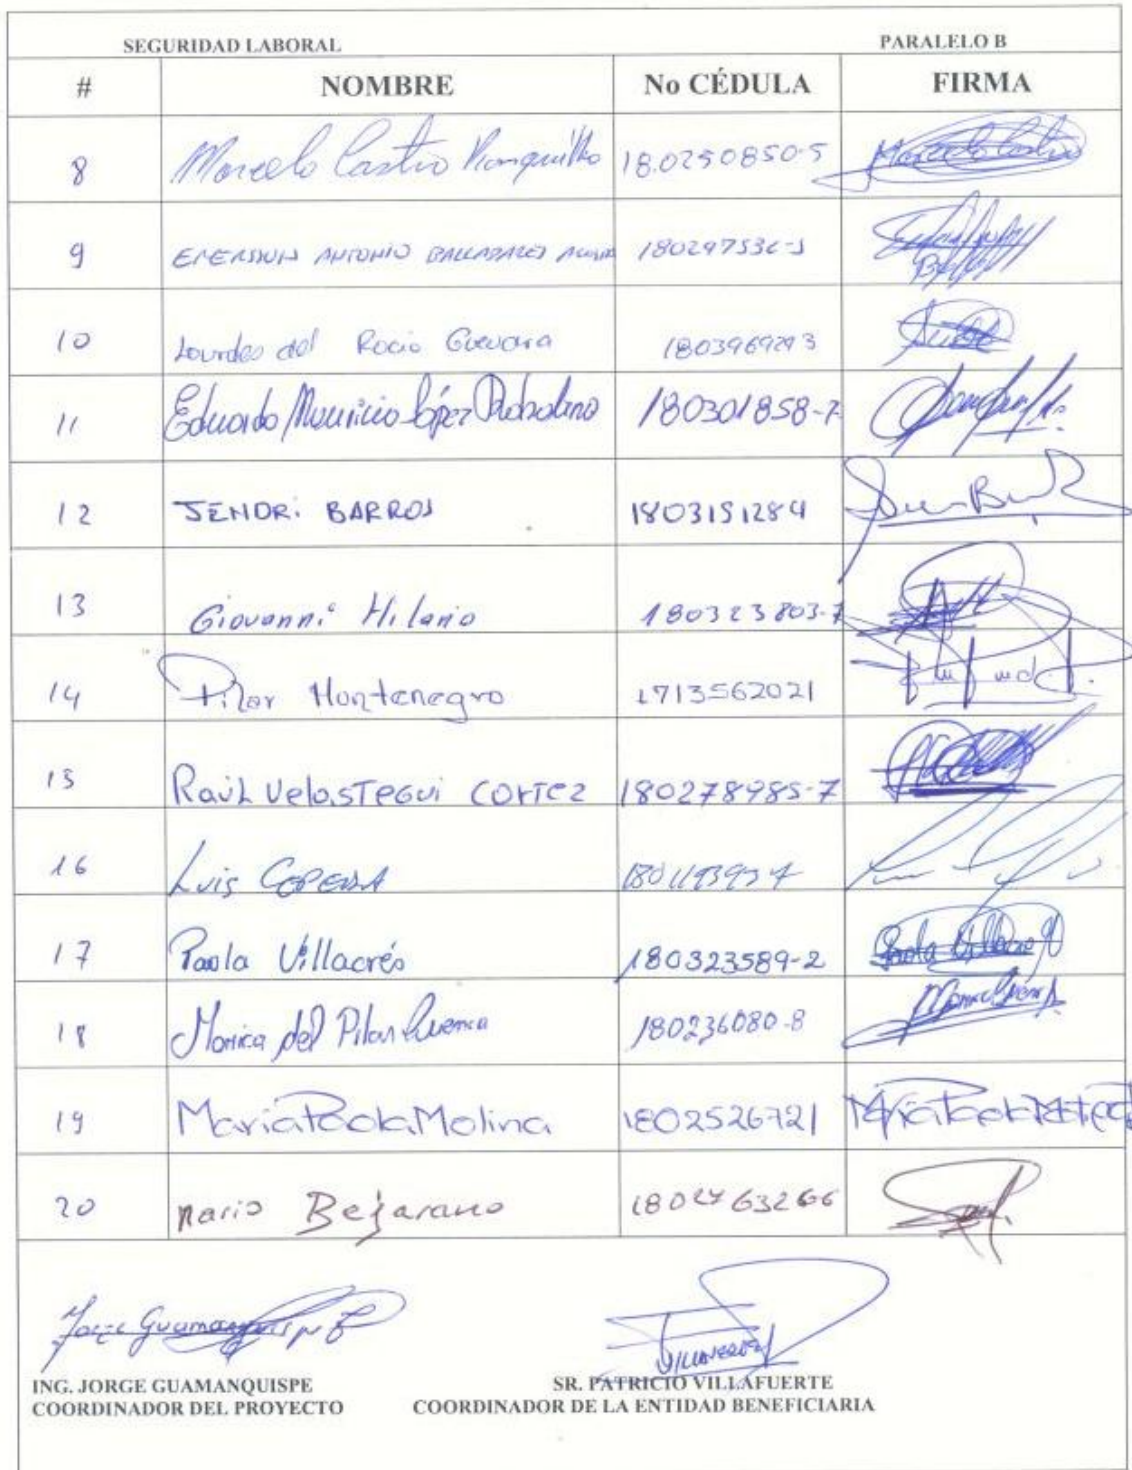 SEGURIDAD LABORAL PARALELO B
# NOMBRE No CÉDULA FIRMA
8 Marcelo Castro 18.0250850-5 Marcelo Castro
9 ANTONIO
10 Lourdes del Rocio Guevara
11 Eduardo Mauricio López 180301858-7
12 JENDRi BARROS 1803151284
13 Giovanni Hilario 180323803-7
14 Pilar Montenegro 1713562021
15 Raúl Velastegui Cortez 180278985-7
16 Luis CEPEDA
17 Paola Villacrés 180323589-2 Paola
18 Monica del Pilar Cuenca 180236080-8
19 Maria Paola Molina 1802526721
20 Mario Bejarano 1802763266
Jorge Guamanquispe
ING. JORGE GUAMANQUISPE SR. PATRICIO VILLAFUERTE
COORDINADOR DEL PROYECTO COORDINADOR DE LA ENTIDAD BENEFICIARIA